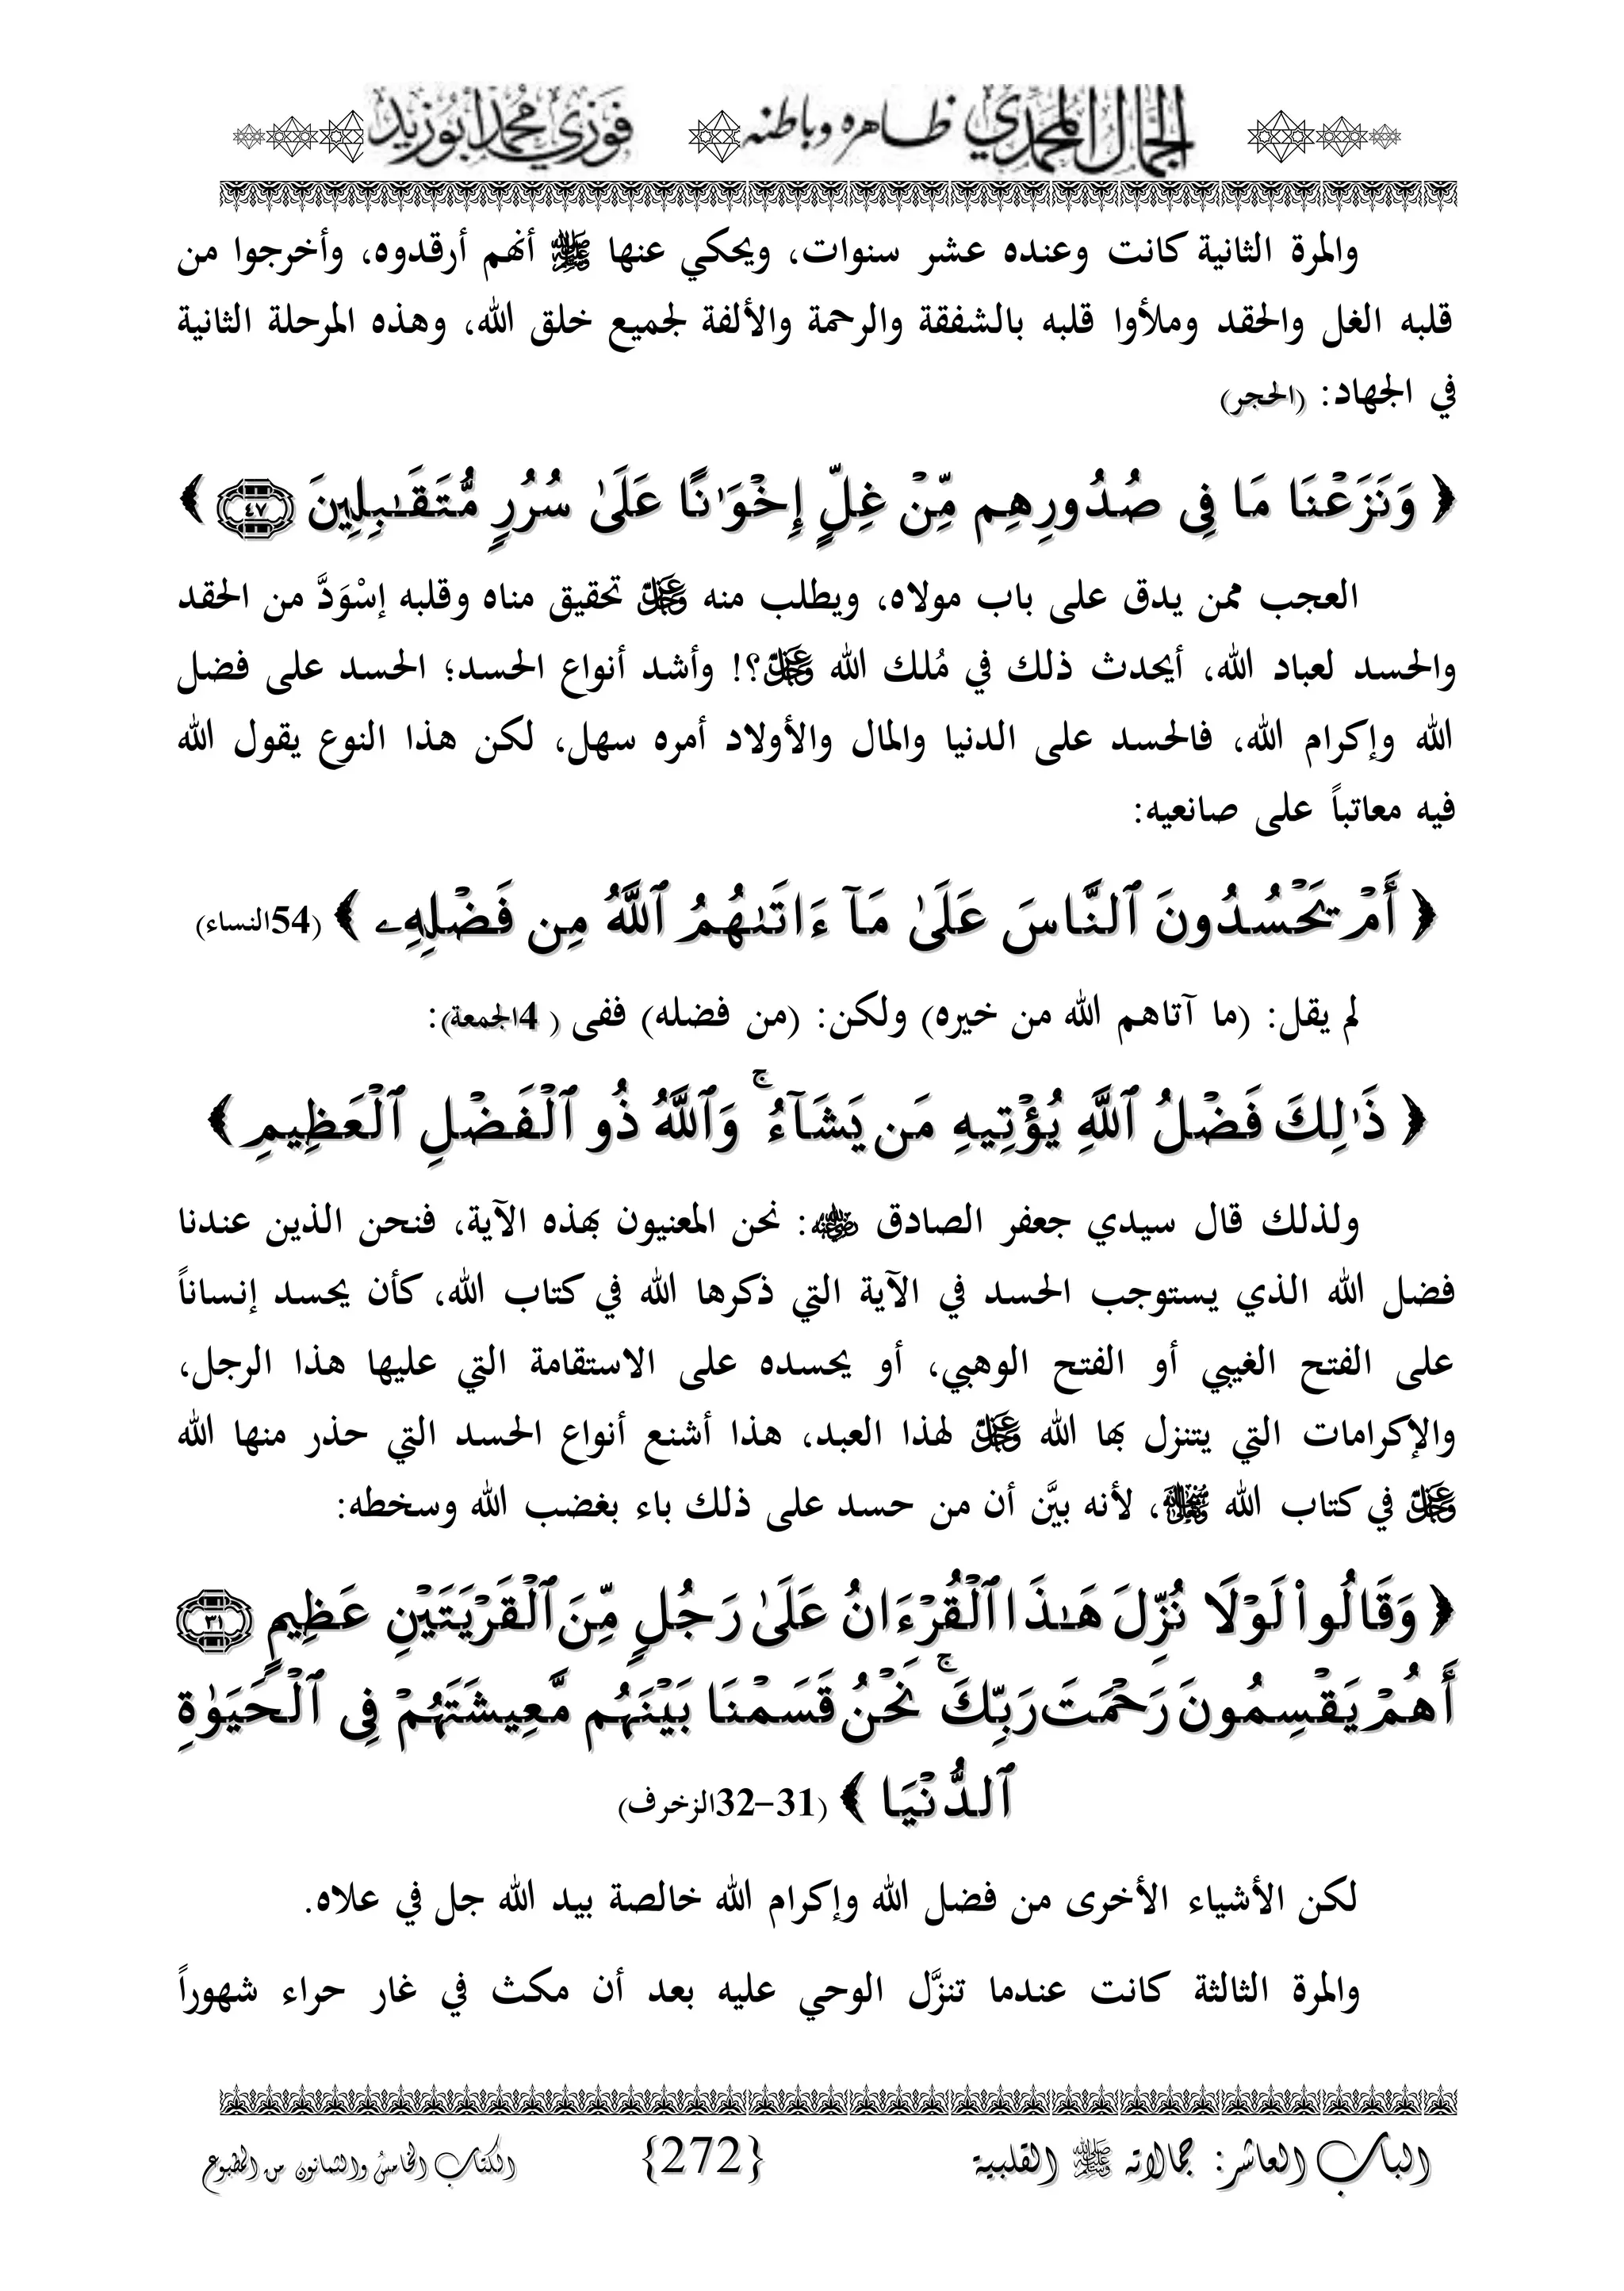 الجمال المحمدي ظاهره وباطنه فوزي محمد أبوزيد
والمرة الثانية كانت وعنده عشر سنوات، ويحكي عنها ﷺ أنهم أرقدوه، وأخرجوا من
قلبه الغل والحقد وملأوا قلبه بالشفقة والرحمة والألفة لجميع خلق الله، وهذه المرحلة الثانية
في الجهاد: (الحجر)
﴿ وَنَزَعْنَا مَا فِى صُدُورِهِم مِّنْ غِلٍّ إِخْوَٰنًا عَلَىٰ سُرُرٍ مُّتَقَـٰبِلِينَ ٤٧ ﴾
العجب ممن يدق على باب مولاه، ويطلب منه عزوجل تحقيق مناه وقلبه إسْوَدَّ من الحقد
والحسد لعباد الله، أيحدث ذلك في مُلك الله عزوجل؟! وأشد أنواع الحسد؛ الحسد على فضل
الله وإكرام الله، فالحسد على الدنيا والمال والأولاد أمره سهل، لكن هذا النوع يقول الله
فيه معاتباً على صانعيه:
﴿ أَمْ يَحْسُدُونَ ٱلنَّاسَ عَلَىٰ مَآ ءَاتَىٰهُمُ ٱللَّهُ مِن فَضْلِهِۦ ﴾ (54النساء)
لم يقل: (ما آتاهم الله من خيره) ولكن: (من فضله) ففى (4الجمعة):
﴿ ذَٰلِكَ فَضْلُ ٱللَّهِ يُؤْتِيهِ مَن يَشَآءُ ۚ وَٱللَّهُ ذُو ٱلْفَضْلِ ٱلْعَظِيمِ ﴾
ولذلك قال سيدي جعفر الصادق رضي الله عنه: نحن المعنيون بهذه الآية، فنحن الذين عندنا
فضل الله الذي يستوجب الحسد في الآية التي ذكرها الله في كتاب الله، كأن يحسد إنساناً
على الفتح الغيبي أو الفتح الوهبي، أو يحسده على الاستقامة التي عليها هذا الرجل،
والإكرامات التي يتنزل بها الله عزوجل لهذا العبد، هذا أشنع أنواع الحسد التي حذر منها الله
عزوجل في كتاب الله ، لأنه بيَّن أن من حسد على ذلك باء بغضب الله وسخطه:
﴿ وَقَالُوا۟ لَوْلَا نُزِّلَ هَـٰذَا ٱلْقُرْءَانُ عَلَىٰ رَجُلٍ مِّنَ ٱلْقَرْيَتَيْنِ عَظِيمٍ ٣١
أَهُمْ يَقْسِمُونَ رَحْمَتَ رَبِّكَ ۚ نَحْنُ قَسَمْنَا بَيْنَهُم مَّعِيشَتَهُمْ فِى ٱلْحَيَوٰةِ
ٱلدُّنْيَا ﴾ (31-32الزخرف)
لكن الأشياء الأخرى من فضل الله وإكرام الله خالصة بيد الله جل في علاه.
والمرة الثالثة كانت عندما تنزَّل الوحي عليه بعد أن مكث في غار حراء شهوراً
الباب العاشر: جمالاته ﷺ القلبية {272} الكتاب الخامس والثمانون من المطبوع